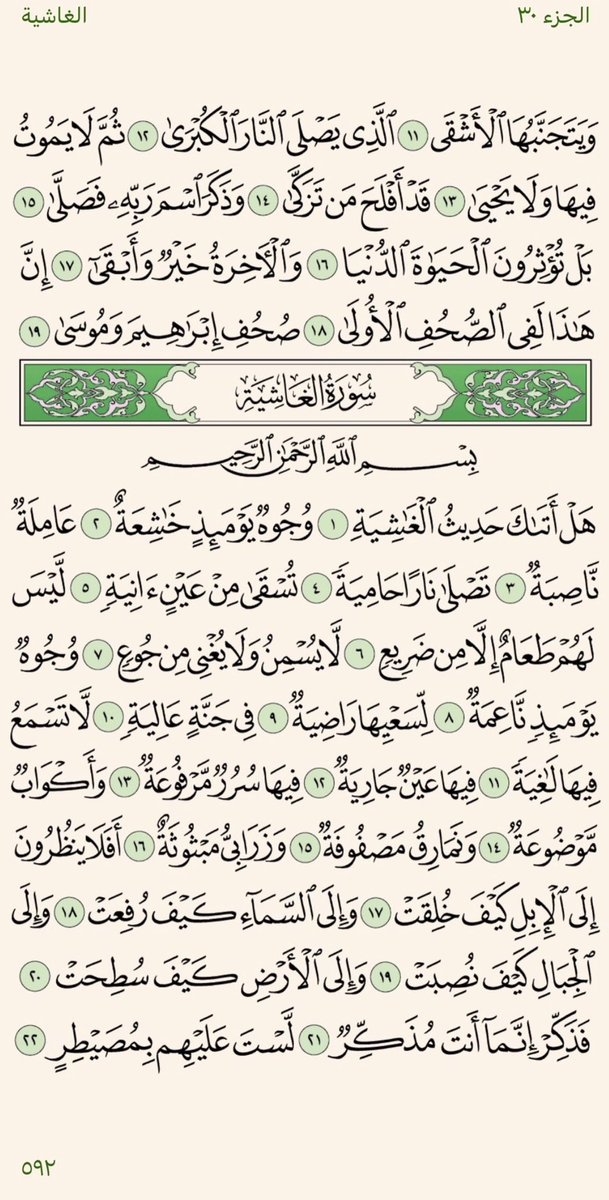 الجزء ٣٠
الغاشية
وَيَتَجَنَّبُهَا ٱلْأَشْقَى ١١ ٱلَّذِى يَصْلَى ٱلنَّارَ ٱلْكُبْرَىٰ ١٢ ثُمَّ لَا يَمُوتُ
فِيهَا وَلَا يَحْيَىٰ ١٣ قَدْ أَفْلَحَ مَن تَزَكَّىٰ ١٤ وَذَكَرَ ٱسْمَ رَبِّهِۦ فَصَلَّىٰ ١٥
بَلْ تُؤْثِرُونَ ٱلْحَيَوٰةَ ٱلدُّنْيَا ١٦ وَٱلْـَٔاخِرَةُ خَيْرٌ وَأَبْقَىٰٓ ١٧ إِنَّ
هَـٰذَا لَفِى ٱلصُّحُفِ ٱلْأُولَىٰ ١٨ صُحُفِ إِبْرَٰهِيمَ وَمُوسَىٰ ١٩
سُورَةُ الغَاشِيَةِ
بِسْمِ ٱللَّهِ ٱلرَّحْمَـٰنِ ٱلرَّحِيمِ
هَلْ أَتَىٰكَ حَدِيثُ ٱلْغَـٰشِيَةِ ١ وُجُوهٌ يَوْمَئِذٍ خَـٰشِعَةٌ ٢ عَامِلَةٌ
نَّاصِبَةٌ ٣ تَصْلَىٰ نَارًا حَامِيَةً ٤ تُسْقَىٰ مِنْ عَيْنٍ ءَانِيَةٍ ٥ لَّيْسَ
لَهُمْ طَعَامٌ إِلَّا مِن ضَرِيعٍ ٦ لَّا يُسْمِنُ وَلَا يُغْنِى مِن جُوعٍ ٧ وُجُوهٌ
يَوْمَئِذٍ نَّاعِمَةٌ ٨ لِّسَعْيِهَا رَاضِيَةٌ ٩ فِى جَنَّةٍ عَالِيَةٍ ١٠ لَّا تَسْمَعُ
فِيهَا لَـٰغِيَةً ١١ فِيهَا عَيْنٌ جَارِيَةٌ ١٢ فِيهَا سُرُرٌ مَّرْفُوعَةٌ ١٣ وَأَكْوَابٌ
مَّوْضُوعَةٌ ١٤ وَنَمَارِقُ مَصْفُوفَةٌ ١٥ وَزَرَابِىُّ مَبْثُوثَةٌ ١٦ أَفَلَا يَنظُرُونَ
إِلَى ٱلْإِبِلِ كَيْفَ خُلِقَتْ ١٧ وَإِلَى ٱلسَّمَآءِ كَيْفَ رُفِعَتْ ١٨ وَإِلَى
ٱلْجِبَالِ كَيْفَ نُصِبَتْ ١٩ وَإِلَى ٱلْأَرْضِ كَيْفَ سُطِحَتْ ٢٠
فَذَكِّرْ إِنَّمَآ أَنتَ مُذَكِّرٌ ٢١ لَّسْتَ عَلَيْهِم بِمُصَيْطِرٍ ٢٢
٥٩٢